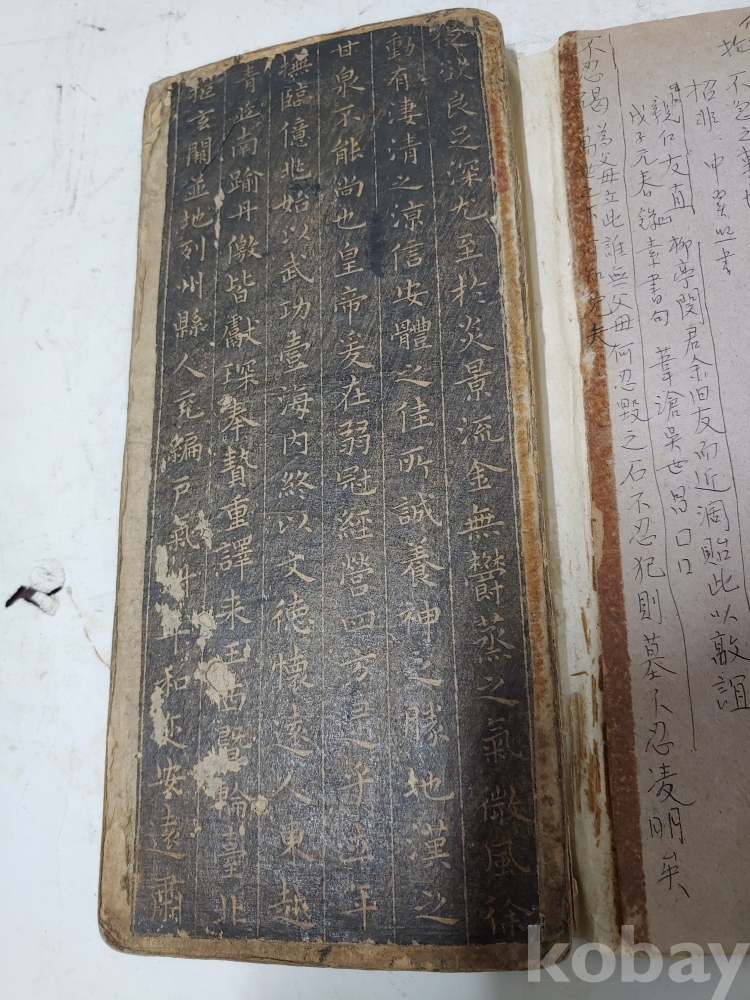 柳亭閔君余旧友而近洞貽此以敲誼
親仁友直
戊子元春錄素書句 葦滄吳世昌口口
為父母立此誰無父母何忍毀之石不忍犯則墓不忍凌明矣
不忍碣
從欲良足深尤至於炎景流金無欝蒸之氣微風徐
動有淒清之涼信安體之佳所誠養神之勝地漢之
甘泉不能尚也皇帝爰在弱冠經營四方逮乎立年
撫臨億兆始以武功壹海內終以文德懷遠人東越
青丘南踰丹徼皆獻琛奉贄重譯来王西暨輪臺北
拒玄闕並地列州縣人充編戶氣淑年和迩安遠肅
kobay